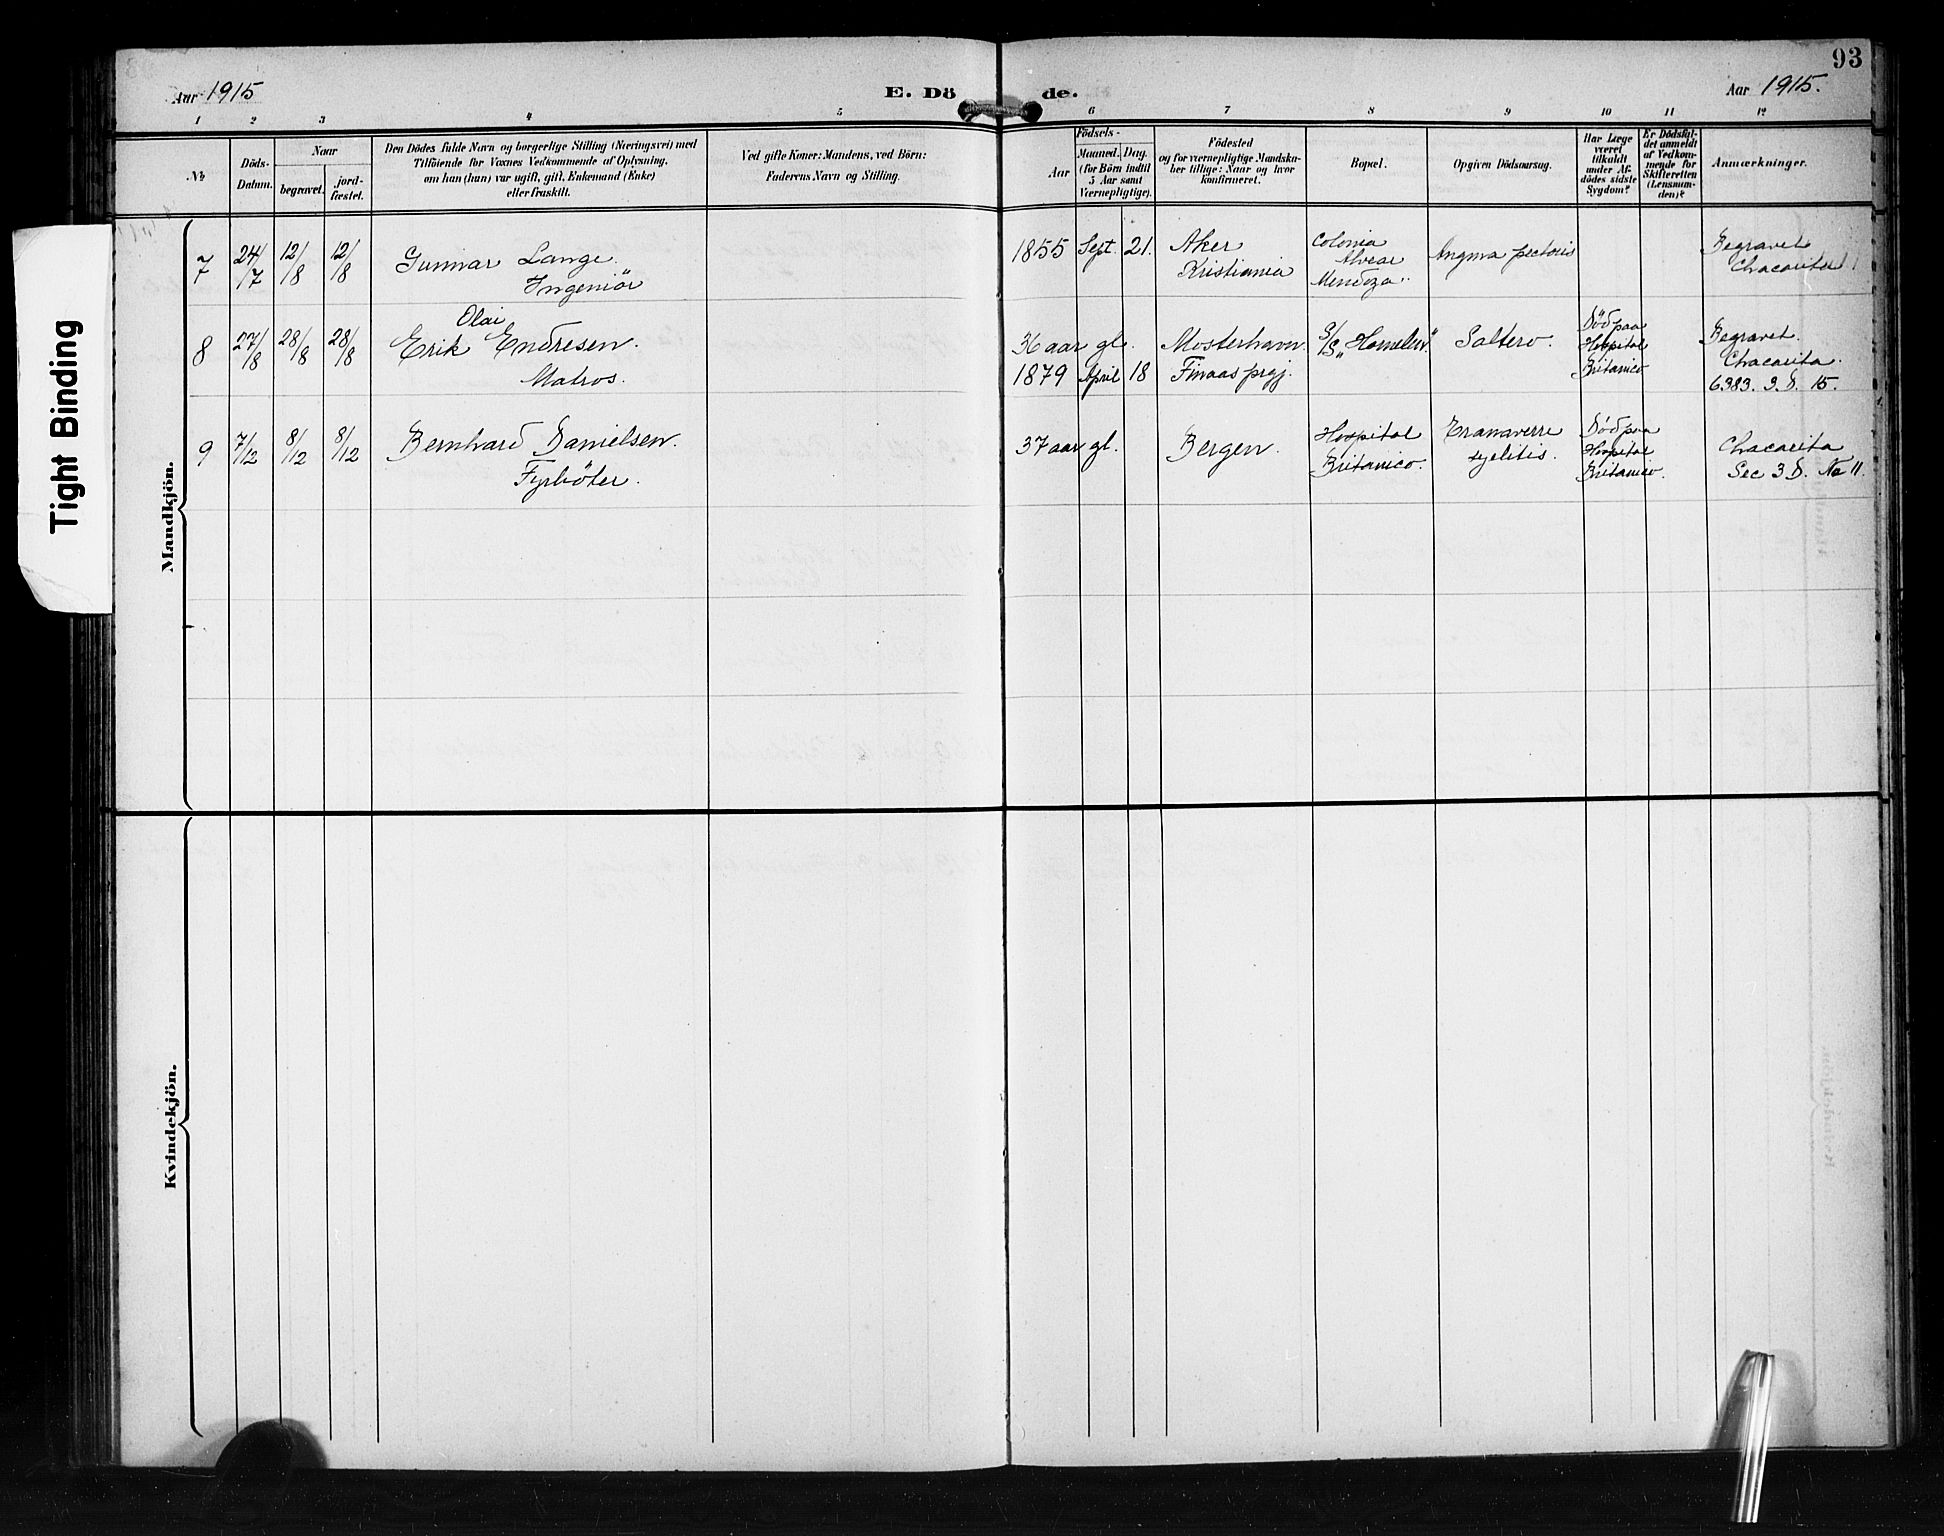 93
Aar 1915
E. Dö
de.
Aar 1915.
1 2 3 4 5 6 7 8 9 10 11 12
№
Döds-
Datum.
Naar
begravet.
jord-
fæstet.
Den Dödes fulde Navn og borgerlige Stilling (Næringsvei) med
Tilföiende for Voxnes Vedkommende af Oplysning,
om han (hun) var ugift, gift, Enkemand (Enke)
eller fraskilt.
Ved gifte Koner: Mandens, ved Börn:
Faderens Navn og Stilling.
Födsels-
Aar
Maaned. Dag.
(for Börn indtil
5 Aar samt
Værnepligtige).
Födested
og for værnepligtige Mandska-
ber tillige: Naar og hvor
konfirmeret.
Bopæl.
Opgiven Dödsaarsag.
Har Læge
været
tilkaldt
under Af-
dödes sidste
Sygdom?
Er Dödsfal-
det anmeldt
af Vedkom-
mende for
Skifteretten
(Lensman-
den)?
Anmærkninger.
Tight Binding
Mandkjön.
7
24/7
12/8
12/8
Gunnar Lange.
Ingeniör
1855 Sept. 21.
Aker
Kristiania
Colonia
Alvear
Mendoza.
Angina pectoris
Begravet
Chacarita
8
27/8
28/8
28/8
Olai
Erik Endresen.
Matros.
36 aar gl.
1879 April 18
Mosterhavn.
Finaas prgj.
S/S
Saltero.
Död paa
Hospital
Britanico
Begravet.
Chacarita.
6383. 3. D. 15.
9
7/12
8/12
8/12
Bernhard Danielsen.
Fyrböter.
37 aar gl.
Bergen.
Hospital
Britanico.
Död paa
Hospital
Britanico.
Chacarita
Sec 3 D. No 11.
Kvindekjön.